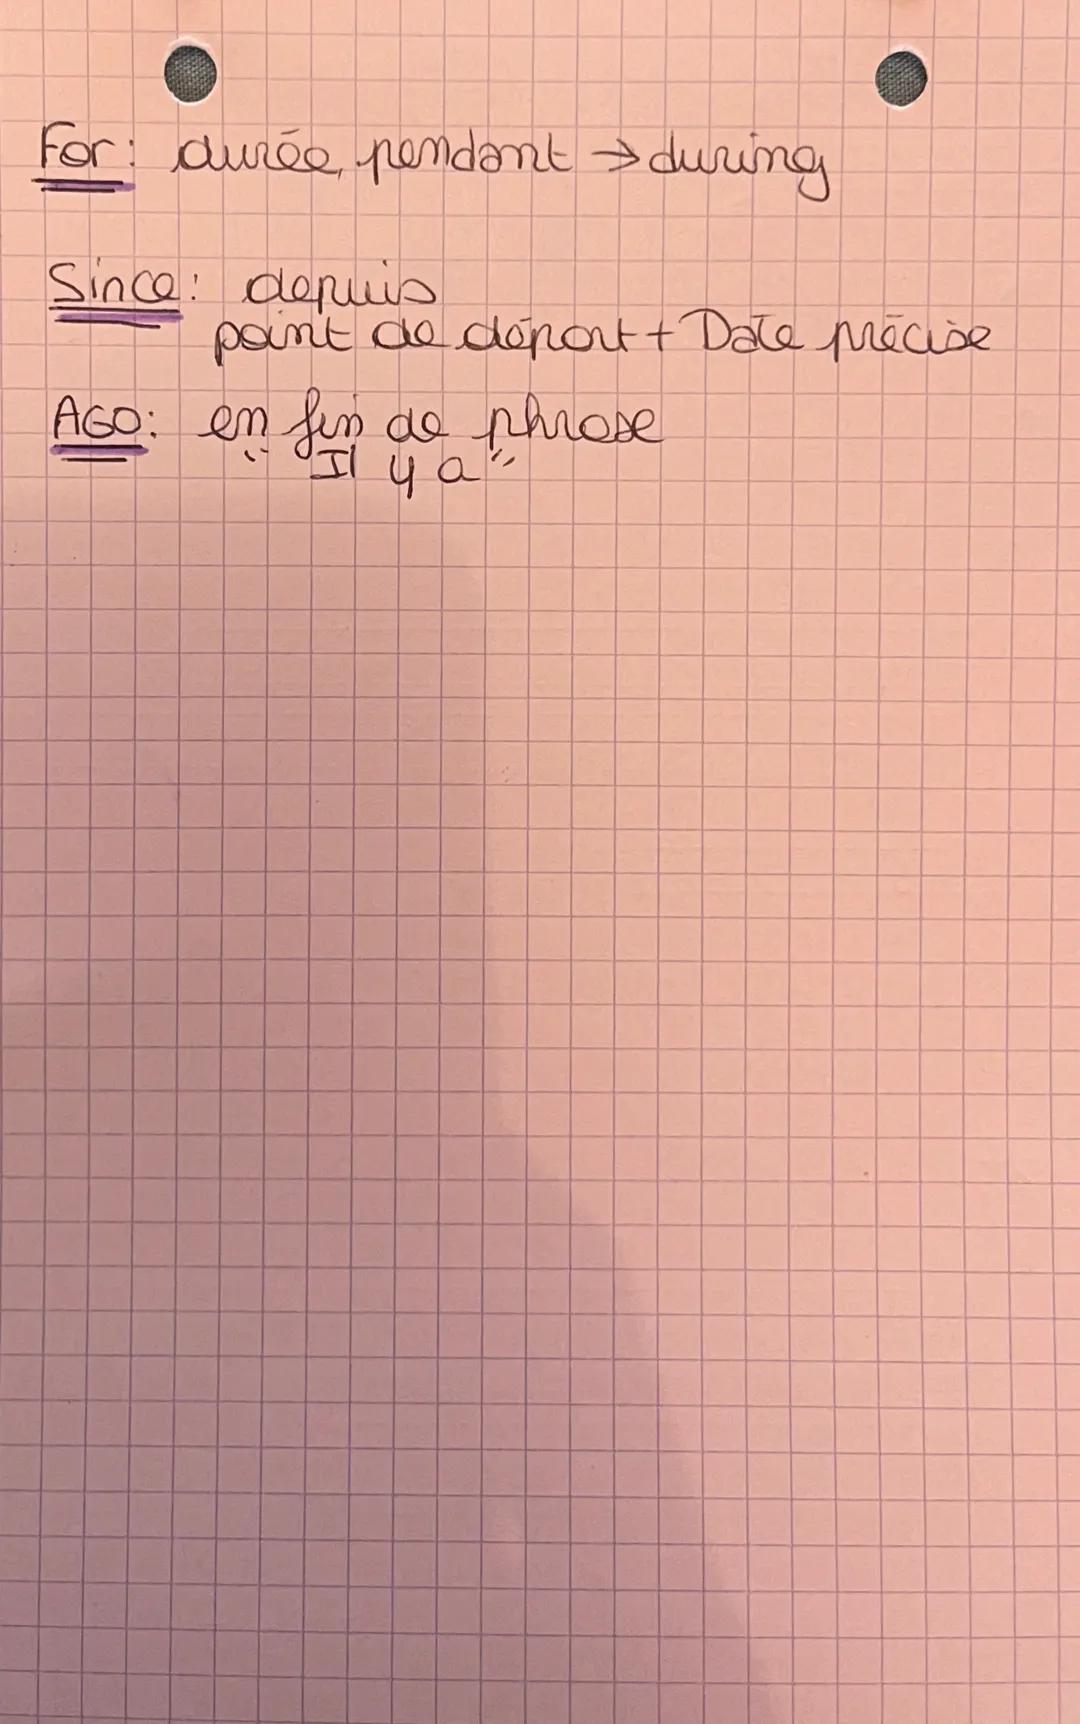 For: durée, pendant → during
Since: depuis
point de départ + Date précise
AGO: en fin de phrase
"Il y a"